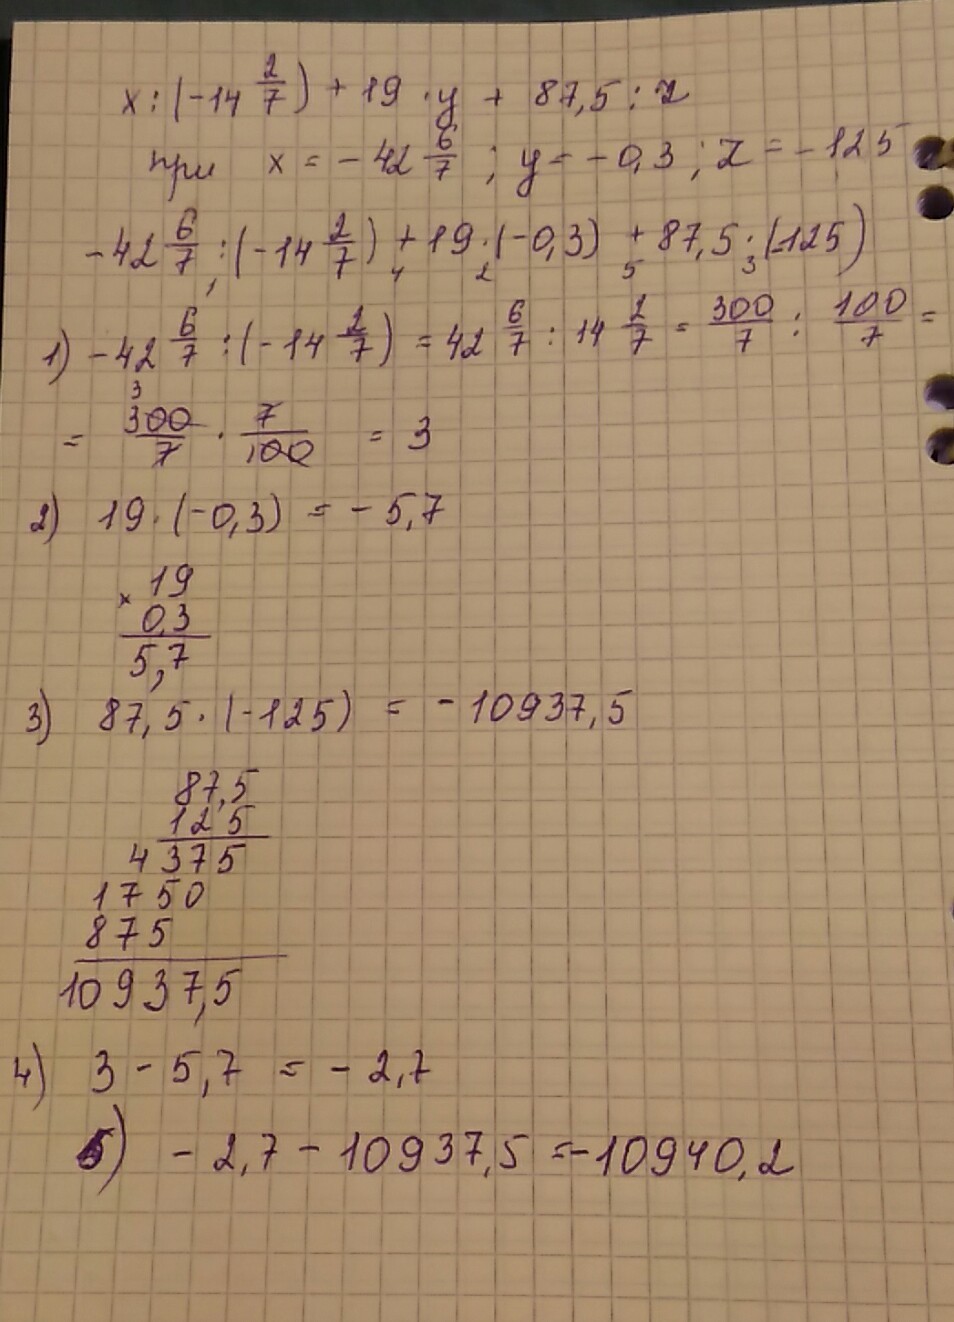 x : (-14 2/7) + 19 · y + 87,5 : z
при x = -42 6/7 ; y = -0,3 ; z = -125
-42 6/7 : (-14 2/7) + 19 · (-0,3) + 87,5 · (-125)
1 4 2 5 3
1) -42 6/7 : (-14 2/7) = 42 6/7 : 14 2/7 = 300/7 : 100/7 =
3
= 300/7 · 7/100 = 3
2) 19 · (-0,3) = -5,7
× 19
0,3
5,7
3) 87,5 · (-125) = -10937,5
87,5
125
4375
1750
875
10937,5
4) 3 - 5,7 = -2,7
5) -2,7 - 10937,5 = -10940,2